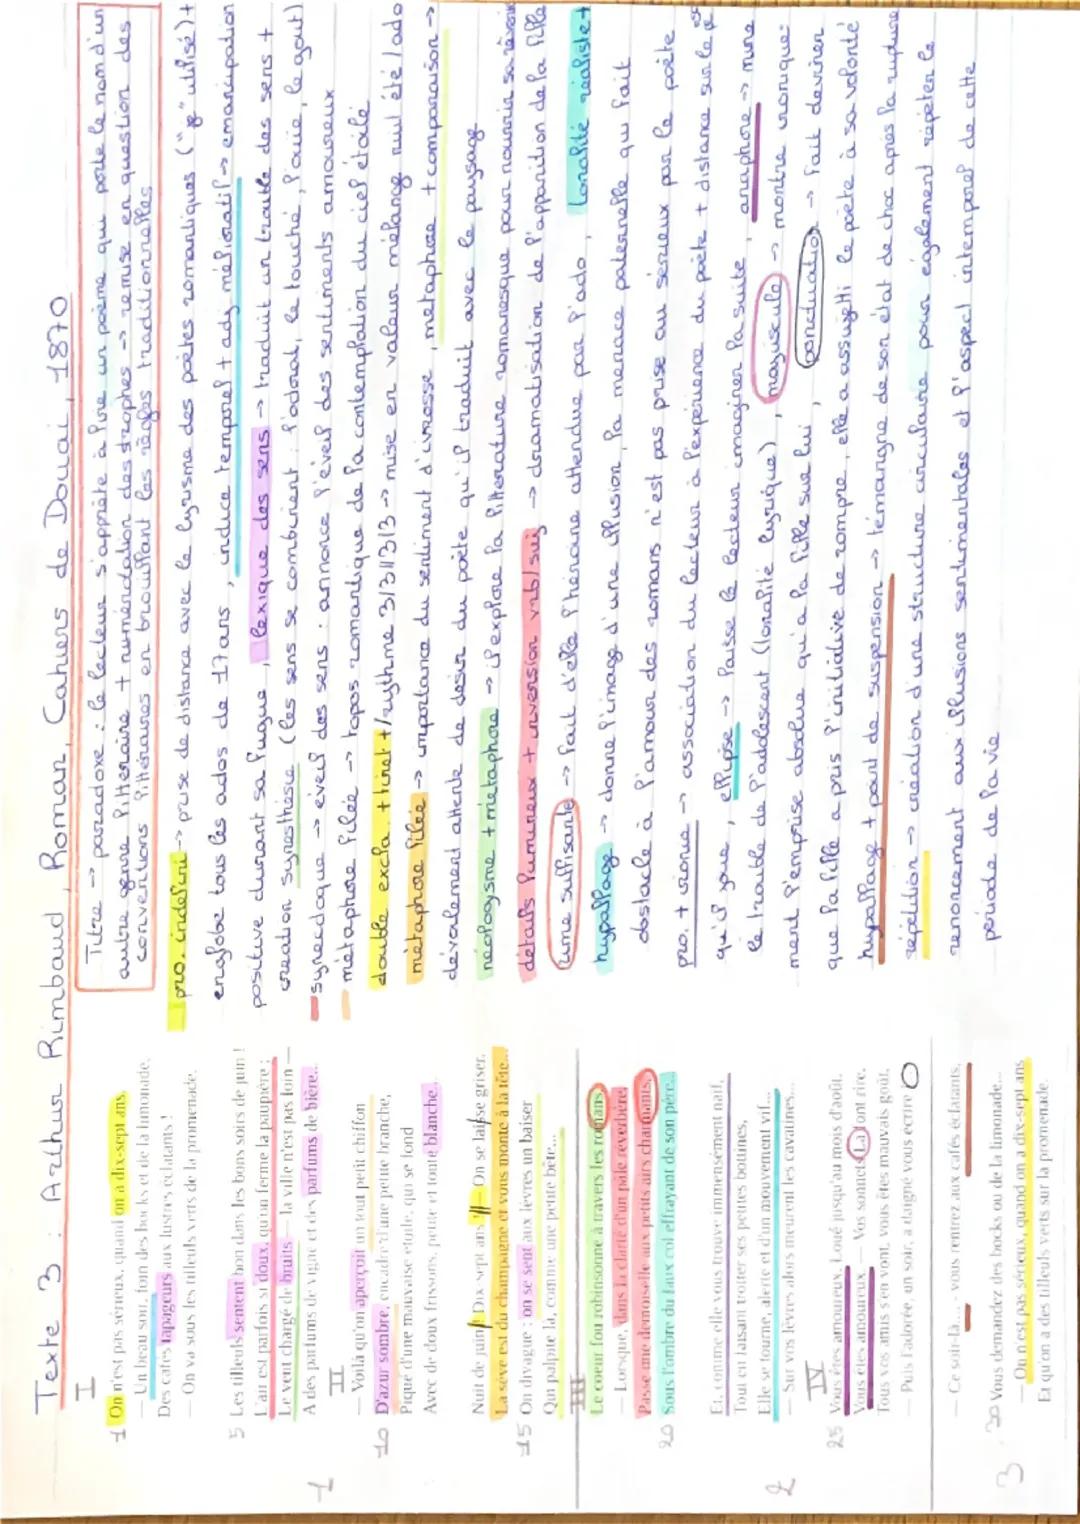 Texte 3 : Arthur Rimbaud, Roman, Cahiers de Douai, 1870
I
1 On n'est pas sérieux, quand on a dix-sept ans.
— Un beau soir, foin des bocks et de la limonade,
Des cafés tapageurs aux lustres éclatants !
— On va sous les tilleuls verts de la promenade.
5 Les tilleuls sentent bon dans les bons soirs de juin !
L'air est parfois si doux, qu'on ferme la paupière ;
Le vent chargé de bruits — la ville n'est pas loin —
A des parfums de vigne et des parfums de bière...
II
— Voilà qu'on aperçoit un tout petit chiffon
10 D'azur sombre, encadré d'une petite branche,
Piqué d'une mauvaise étoile, qui se fond
Avec de doux frissons, petite et toute blanche...
Nuit de juin ! Dix-sept ans ! — On se laisse griser.
La sève est du champagne et vous monte à la tête...
15 On divague ; on se sent aux lèvres un baiser
Qui palpite là, comme une petite bête...
III
Le cœur fou robinsonne à travers les romans,
— Lorsque, dans la clarté d'un pâle réverbère,
Passe une demoiselle aux petits airs charmants,
20 Sous l'ombre du faux col effrayant de son père...
Et, comme elle vous trouve immensément naïf,
Tout en faisant trotter ses petites bottines,
Elle se tourne, alerte et d'un mouvement vif...
— Sur vos lèvres alors meurent les cavatines...
IV
25 Vous êtes amoureux. Loué jusqu'au mois d'août.
Vous êtes amoureux. — Vos sonnets La font rire.
Tous vos amis s'en vont, vous êtes mauvais goût.
— Puis l'adorée, un soir, a daigné vous écrire
— Ce soir-là,... — vous rentrez aux cafés éclatants,
30 Vous demandez des bocks ou de la limonade...
— On n'est pas sérieux, quand on a dix-sept ans
Et qu'on a des tilleuls verts sur la promenade.
1
2
3
Titre -> paradoxe : le lecteur s'apprête à lire un poème qui porte le nom d'un
autre genre littéraire + numérotation des strophes -> remise en question des
conventions littéraires en brouillant les règles traditionnelles
pro. indéfini -> prise de distance avec le lyrisme des poètes romantiques ("je" utilisé) +
englobe tous les ados de 17 ans, indice temporel + adj mélioratif -> émancipation
positive durant sa fugue, lexique des sens -> traduit un trouble des sens +
création synesthésie (les sens se combinent : l'odorat, le touché, l'ouïe, le gout)
synecdoque -> éveil des sens : annonce l'éveil des sentiments amoureux
métaphore filée -> topos romantique de la contemplation du ciel étoilé
double excla. + tiret + / rythme 3/3//3/3 -> mise en valeur mélange nuit été / ado
métaphore filée -> importance du sentiment d'ivresse, metaphore + comparaison ->
dévoilement attente de désir du poète qu'il traduit avec le paysage
néologisme + métaphore -> il explore la littérature romanesque pour nourrir sa rêverie
détails lumineux + inversion vrb/suj -> dramatisation de l'apparition de la fille
rime suffisante -> fait d'elle l'héroïne attendue par l'ado, tonalité réaliste +
hypallage -> donne l'image d'une illusion, la menace paternelle qui fait
obstacle à l'amour des romans n'est pas prise au sérieux par le poète
pro. + ironie -> association du lecteur à l'expérience du poète + distance sur le
qu'il joue, ellipse -> laisse le lecteur imaginer la suite, anaphore -> mime
le trouble de l'adolescent (tonalité lyrique), majuscule -> montre ironique-
ment l'emprise absolue qu'a la fille sur lui, ponctuation -> fait deviner
que la fille a pris l'initiative de rompre, elle a assujetti le poète à sa volonté
hypallage + point de suspension -> témoigne de son état de choc après la rupture
répétition -> création d'une structure circulaire pour également répéter le
renoncement aux illusions sentimentales et l'aspect intemporel de cette
période de la vie